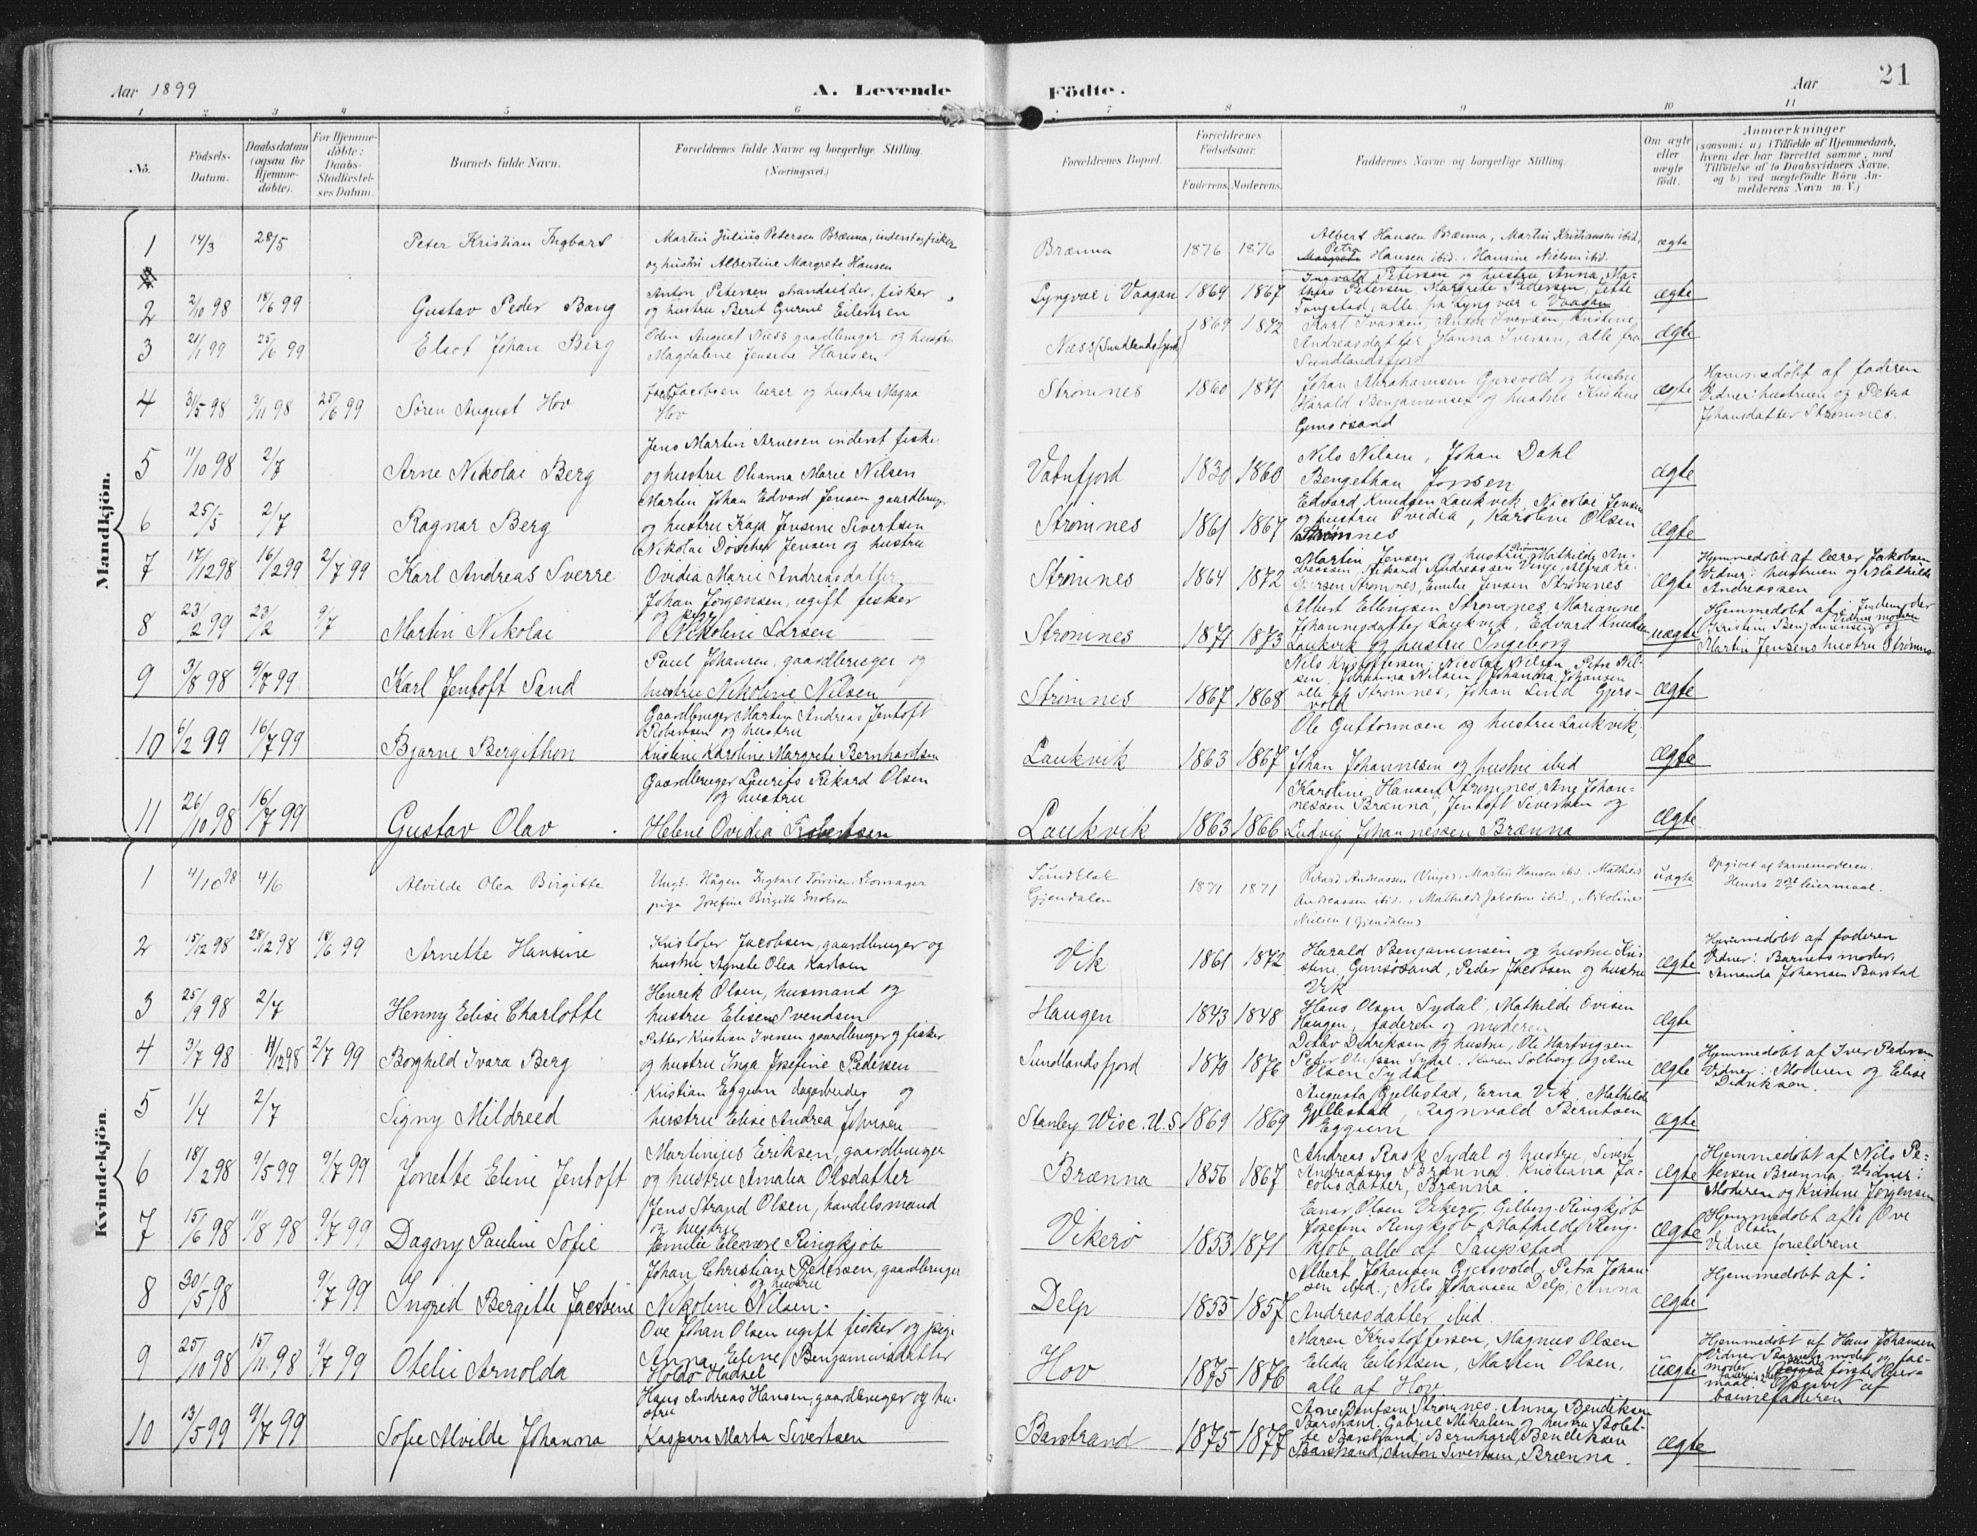 Aar 1899
A. Levende
Födte.
Aar
21
1 2 3 4 5 6 7 8 9 10 11
No.
Födsels-
Datum.
Daabsdatum
(ogsaa for
Hjemme-
döbte).
For Hjemme-
döbte:
Daabs-
Stadfæstel-
ses Datum.
Barnets fulde Navn.
Forældrenes fulde Navne og borgerlige Stilling.
(Næringsvei.)
Forældrenes Bopæl.
Forældrenes
Födselsaar.
Faderens. Moderens.
Faddernes Navne og borgerlige Stilling.
Om ægte
eller
uægte
födt.
Anmærkninger
(saasom: a) i Tilfælde af Hjemmedaab,
hvem der har forrettet samme, med
Tilföielse af to Daabsvidners Navne,
og b) ved uægtefödte Börn An-
melderens Navn m. V.)
Mandkjön.
1 14/3 28/5 Peter Kristian Ingbart
Martin Julius Petersen Brænna, inderst og fisker
og hustri Albertine Margrete Hansen
Brænna 1876 1876
Albert Hansen Brænna, Martin Kristiansen ibid.
Petra
Margrete Hansen ibid. Hansine Nielsen ibid.
ægte
2 2/10 98 18/6 99 Gustav Peder Bang
Anton Petersen strandsidder, fisker
og hustru Berit Gurine Eilertsen
Lyngvær i Vaagan 1869 1867
Ingvald Petersen og hustru Anna, Ma-
thias Petersen, Margrete Pedersen, Jette
Tangstad, alle fra Lyngvær i Vaagan
Ægte
3 21/1 99 25/6 99 Elsot Johan Berg
Odin August Næss gaardbruger og hustru
Magdalene Jensine Hansen
Næss (Sundlandsfjord) 1869 1872
Karl Ivarsen, Anton Iversen, Kristine
Andreasdatter, Hanna Iversen, alle fra
Sundlandsfjord
Ægte
4 31/5 98 3/11 98 25/6 99 Søren August Hov
Jacob Jacobsen lærer og hustru Magna
Hov
Strømnes 1860 1871
Johan Abrahamsen Gjersvold og hustru
Harald Benjaminsen og hustru Kristine
Gimsøsand
Ægte
Hjemmedøbt af faderen
Vidner: hustruen og Petra
Johansdatter Strømnes.
5 11/10 98 2/7 Arne Nikolai Berg
Jens Martin Arnesen inderst fisker
og hustru Olianna Marie Nilsen
Vatnfjord 1830 1860
Nils Nilsen, Johan Dahl
Bengethan Jonsen
Ægte
6 25/5 2/7 Ragnar Berg
Martin Johan Edvard Jensen, gaardbruger
og hustru Kaja Jensine Sivertsen
Strømnes 1861 1867
Edvard Knudsen Laukvik, Nicolai Jensen
og hustru Ovidia, Karoline Olsen
Strømnes
Ægte
7 17/12 98 16/2 99 2/7 99 Karl Andreas Sverre
Nikolai Døscher Jensen og hustru
Ovidia Marie Andreasdatter
Strømnes 1864 1872
Martin Jensen og hustru Mathilde An-
dreassen, Rikard Andreassen Vinje, Alfred Ka-
Strømnes, Emilie Jensen Strømnes
Ægte
Hjemmedøbt af lærer Jakobsen
Vidner: hustruen og Mathilde
Andreassen
8 23/2 99 23/2 9/7 Martin Nikolai
Johan Jørgensen, ugift fisker
og pige
Nikoline Larsen
Strømnes 1871 1873
Albert Ellingsen Strømnes, Marianne
Johannesdatter Laukvik, Edvard Knudsen
Laukvik og hustru Ingeborg
uægte
Hjemmedøbt af Jordemoder
Kristine Benjaminsen Vidner moderen og
Martin Jensens hustru Strømnes
9 3/8 98 9/7 99 Karl Jentoft Sand
Paul Johansen, gaardbruger og
hustru Nikoline Nilsen
Strømnes 1867 1868
Nils Kristoffersen, Nicolai Nilsen, Petra Nil-
sen, Johanna Nilsen, Johanna Johansen
alle af Strømnes, Johan Lind Gjers-
vold
Ægte
10 6/2 99 16/7 99 Bjarne Bergithon
Gaardbruger Martin Andreas Jentoft
Robertsen og hustru
Kristine Karoline Margrete Bernhardsen
Laukvik 1863 1867
Ole Guttormsen og hustru Laukvik.
Johan Johannesen og hustru ibid
Ægte
11 26/10 98 16/7 99 Gustav Olav
Gaardbruger Laurits Rikard Olsen
og hustru
Helene Ovidia Robertsen
Laukvik 1863 1866
Karoline Hansen Strømnes, Ane Johan-
nessen Brænna, Jentoft Sivertsen og
Ludvig Johannessen Brænna
Ægte
Kvindekjön.
1 4/10 98 4/6 Alvilde Olea Birgitte
Ungk. Hågen Ingbart
pige Josefine Birgitte Enoksen
Sundklak
Gjendalen 1871 1871
Rikard Andreassen (Vinje), Martin Hansen ibid., Mathilde
Andreassen ibid., Mathilde Jakobsen ibid., Nikoline
Nielsen (Gjendalen)
uægte
Opgivet af barnemoderen.
Hendes 2det leiermaal.
2 15/12 98 28/12 98 18/6 99 Arnette Hansine
Kristofer Jacobsen, gaardbruger og
hustru Agnete Olea Karlsen
Vik 1861 1872
Harald Benjaminsen og hustru Kri-
stine, Gimsøsand, Peder Jacobsen og hustru
Vik
Ægte
Hjemmedøbt af faderen
Vidner: Barnets moder,
Amanda Johansen Barstad
3 25/9 98 2/7 Henny Elise Charlotte
Henrik Olsen, husmand og
hustru Elisen Svendsen
Haugen 1843 1848
Hans Olsen Sydal, Mathilde Evisen
Haugen, faderen og moderen
Ægte
4 3/7 98 11/12 98 2/7 99 Borghild Ivara Berg
Petter Kristian Iversen gaardbruger og fisker
og hustru Inga Josefine Pedersen
Sundlandsfjord 1870 1876
Detlev Didriksen og hustru, Ole Hartvigsen
Peder Olufsen Sydal, Karen Solberg og Ane
Olsen Sydal
Ægte
Hjemmedøbt af Iver Pedersen
Vidner: Moderen og Elise
Didriksen.
5 1/4 2/7 Signy Mildreed
Kristian Eggum dagarbeider og
hustru Elise Andrea Johnsen
Stanley Wisc. U.S. 1869 1869
Augusta Gjellestad, Erna Vik, Mathilde
Gjellestad, Ragnvald Berntsen
Eggum
Ægte
6 18/2 98 9/5 99 9/7 99 Jonette Eline Jentoft
Martinius Eriksen, gaardbruger
og hustru Amalia Olsdatter
Brænna 1856 1867
Andreas Rask Sydal og hustru, Sivert
Andreassen Brænna, Kristiana Ja-
cobsdatter, Brænna
Ægte
Hjemmedøbt af Nils Pe-
tersen Brænna, Vidner:
Moderen og Kristine Jørgensen
7 15/6 98 11/8 98 9/7 99 Dagny Pauline Sofie
Jens Strand Olsen, handelsmand
og hustru
Emilie Elenore Ringkjøb
Vikerø 1853 1871
Einar Olsen Vikerø, Gilberg Ringkjøb
Josefine Ringkjøb, Mathilde Ring-
kjøb alle af Saupstad
Ægte
Hjemmedøbt af: Ove
Olsen
Vidner forældrene
8 30/5 98 9/7 99 Ingrid Bergitte Jacobine
Johan Christian Pedersen, gaardbruger
og hustru
Nikoline Nilsen.
Delp 1855 1857
Albert Johansen Gjersvold, Petra Johan-
sen ibid.; Nils Johansen Delp, Anna
Andreasdatter ibid.
Ægte
Hjemmedøbt af:
9 25/10 98 15/11 98 9/7 99 Otelie Arnolda
Ove Johan Olsen ugift fisker og pige
Anna Eline Benjaminsdatter
Holdø Hadsel
Hov 1875 1876
Maren Kristoffersen, Magnus Olsen
Elida Eilertsen, Martin Olsen,
alle af Hov
uægte
Hjemmedøbt af Hans Johansen
Vidner Barnets moder og far-
moder første leier-
maal. Opgivet af
barnefaderen
10 13/5 99 9/7 99 Sofie Alvilde Johanna
Hans Andreas Hansen, gaardbruger og hu-
stru
Kaspara Marta Sivertsen
Barstrand 1875 1877
Arne Olufsen Strømnes, Anna Bendiksen
Barstrand, Gabriel Mikalsen og hustru
Barstrand, Bernhard Bendiksen
Barstrand, Anton Sivertsen, Brænna.
Ægte